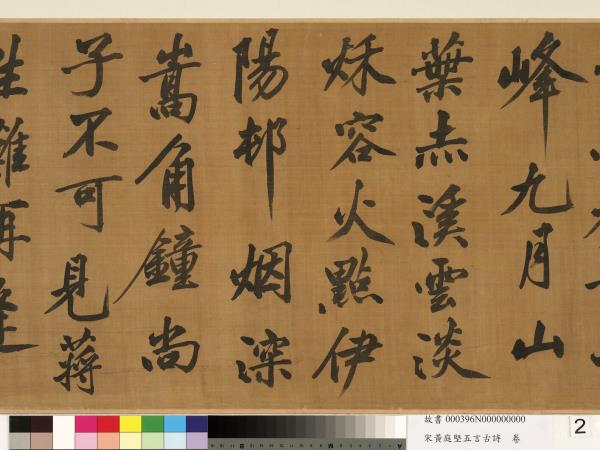 峰九月山
葉赤溪雲淡
秋容火點伊
陽邨烟深
嵩角鐘尚
子不可見蔣
生難再逢
故書 000396N000000000
宋黃庭堅五言古詩 卷
2